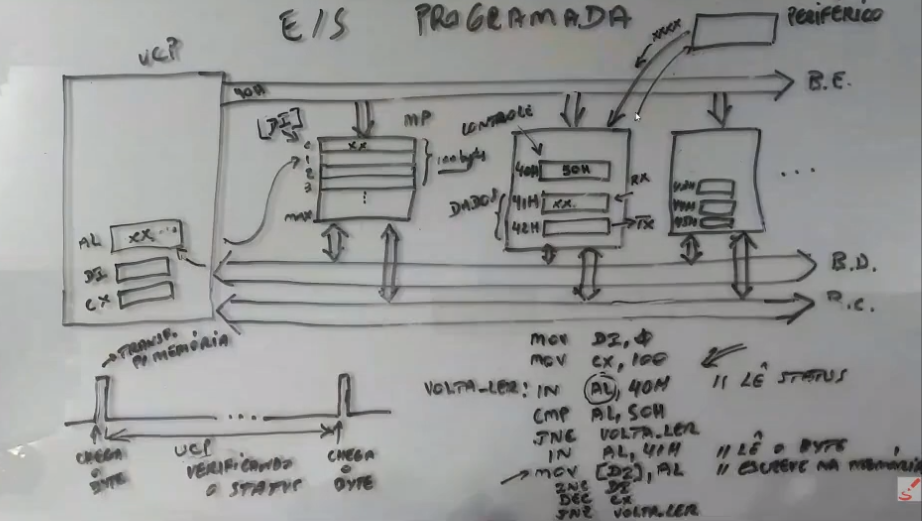 E/S PROGRAMADA
PERIFÉRICO
xxxx
UCP
40H
B.E.
[DI]
MP
CONTROLE
0 xx
1
2
3
⋮
MAX
100 bytes
40H 50H
DADOS
41H xx. RX
42H TX
...
AL xx...
DI
CX
B.D.
B.C.
TRANSF.
P/ MEMÓRIA
...
CHEGA
O
BYTE
UCP
VERIFICANDO
O STATUS
CHEGA
O
BYTE
MOV DI, 0
MOV CX, 100
VOLTA_LER: IN AL, 40H // LÊ STATUS
CMP AL, 50H
JNE VOLTA_LER
IN AL, 41H // LÊ O BYTE
MOV [DI], AL // ESCREVE NA MEMÓRIA
INC DI
DEC CX
JNZ VOLTA_LER